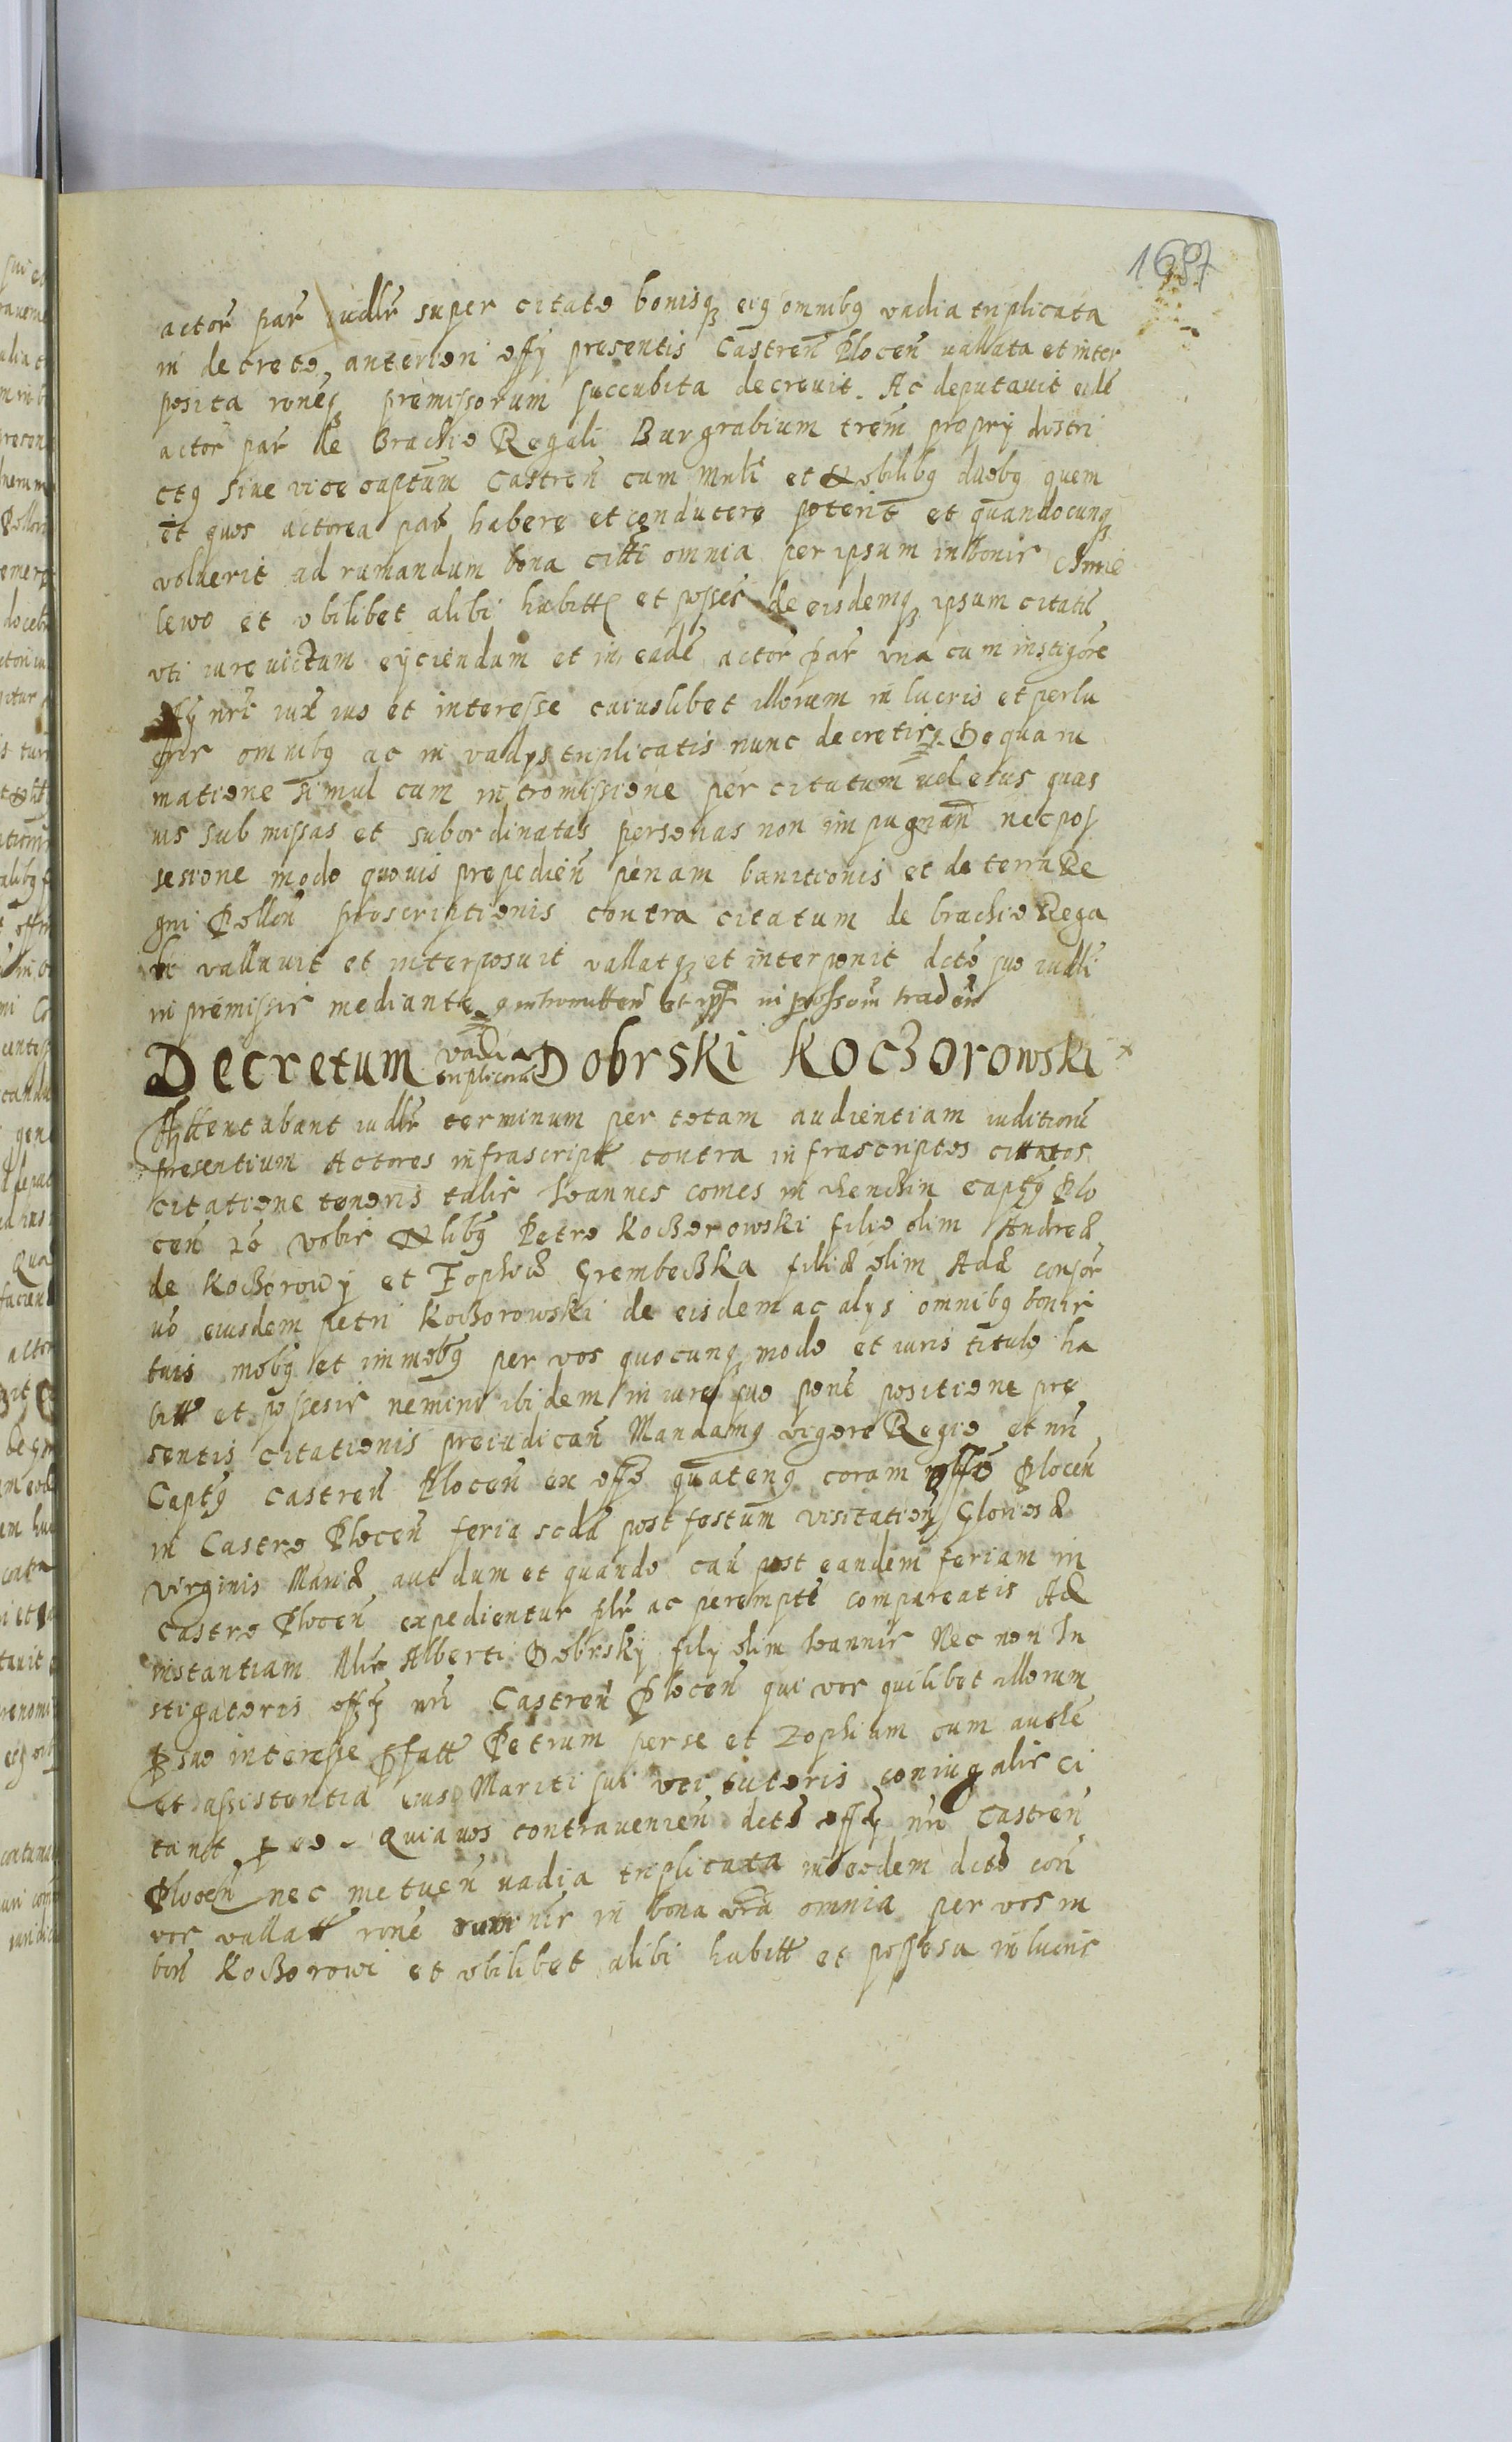 1687
actor̃ par̃ iudlr̃ super citato bonisq₃ eiꝯ omnibꝯ vadia triplicata
in decreto anteriori offÿ presentis Castren̄ Plocen̄ vallata et inter
posita roneq₃ premissorum succubita decreuit. Ac deputauit eidē
actor̃ par̃ de Brachio Regali Burgrabium trem̄ propry distri
ctꝯ siue vice captum Castren̄ cum mnlī et Nobilibꝯ duobꝯ quem
et quos actorea par̃ habere et conducere poterit et quandocunq₃
voluerit ad rumandum bona citti omnia per ipsum in bonis
lewo et vbilibet alibi habitt et posses de eisdemq₃ ipsum citatū
vti iure victum eÿciendum et in eadē actor̃ par̃ vna cum instigōre
offÿ nrī iux̄ ius et interesse cuiuslibet illorum in lucris et perlu
cris omnibꝯ ac in vadÿs triplicatis nunc decretis. De qua ru
matione simul cum intromissione per citatum vel eius quas
uis submissas et subordinatas personas non impugnan̄ nec pos
sesione modo quouis prepedien̄ penam banitionis et de terra Re
gni Pollon̄ proscriptionis contra citatum de brachio Rega
li vallauit et interposuit vallatq₃ et interponit dctō suo iudlī
in premissis mediante intromitten̄ et ipī in possom̄ traden̄
Decretum vadia triplicata Dobrski Koczorowski
Attentabant iudlr̃ terminum per totam audientiam iuditioru̅
presentium Actores infrascriptt contra infrascriptos cittatos
citatione tenoris talis Ioannes comes in capt̄ꝯ Plo
cen̄ vobis Nlibꝯ Petro Koczorowski filio olim Andreæ
de Koczorowÿ et Zophiæ Grembeczka filiæ olim Adæ consor̃
vō eiusdem petri Koczorowski de eisdem ac alÿs omnibꝯ bonis
tuis mobꝯ et immobꝯ per vos quocunq₃ modo et iuris titulo ha
bitt et possesis nemini ibidem in iure suo penē positione pre
sentis citationis preiudican̄ Mandamꝯ vigore Regio et nrī
Captꝯ castren̄ Plocen̄ ex offo quatenꝯ coram offō Plocen̄
in Castro Plocen̄ feria scdā post festum visitation̄ Gloriosæ
virginis Mariæ aut dum et quando cau̅ post eandem feriam in
castro Plocen̄ expedientur plr̃ ac peremptē compareatis Ad
instantiam Nlis Alberti Dobrskÿ filÿ olim Ioannis Nec non In
stigatoris offÿ nrī Castren̄ Plocen̄ qui vos quilibet illorum
ꝑ suo interesse pfatt Petrum per se et Zophiam cum authē
et assistentia eius Mariti sui vti tutoris coniugalis ci
tant ꝑ eo Quia vos contrauenien̄ dctō offÿ nrī Castren̄
Plocen̄ nec metuen̄ vadia triplicata in eodem dctō con̄
vos vallatt rone in bona vrā omnia per vos in
bon̄ Koczorowi et vbilibet alibi habitt et possesa in lucris